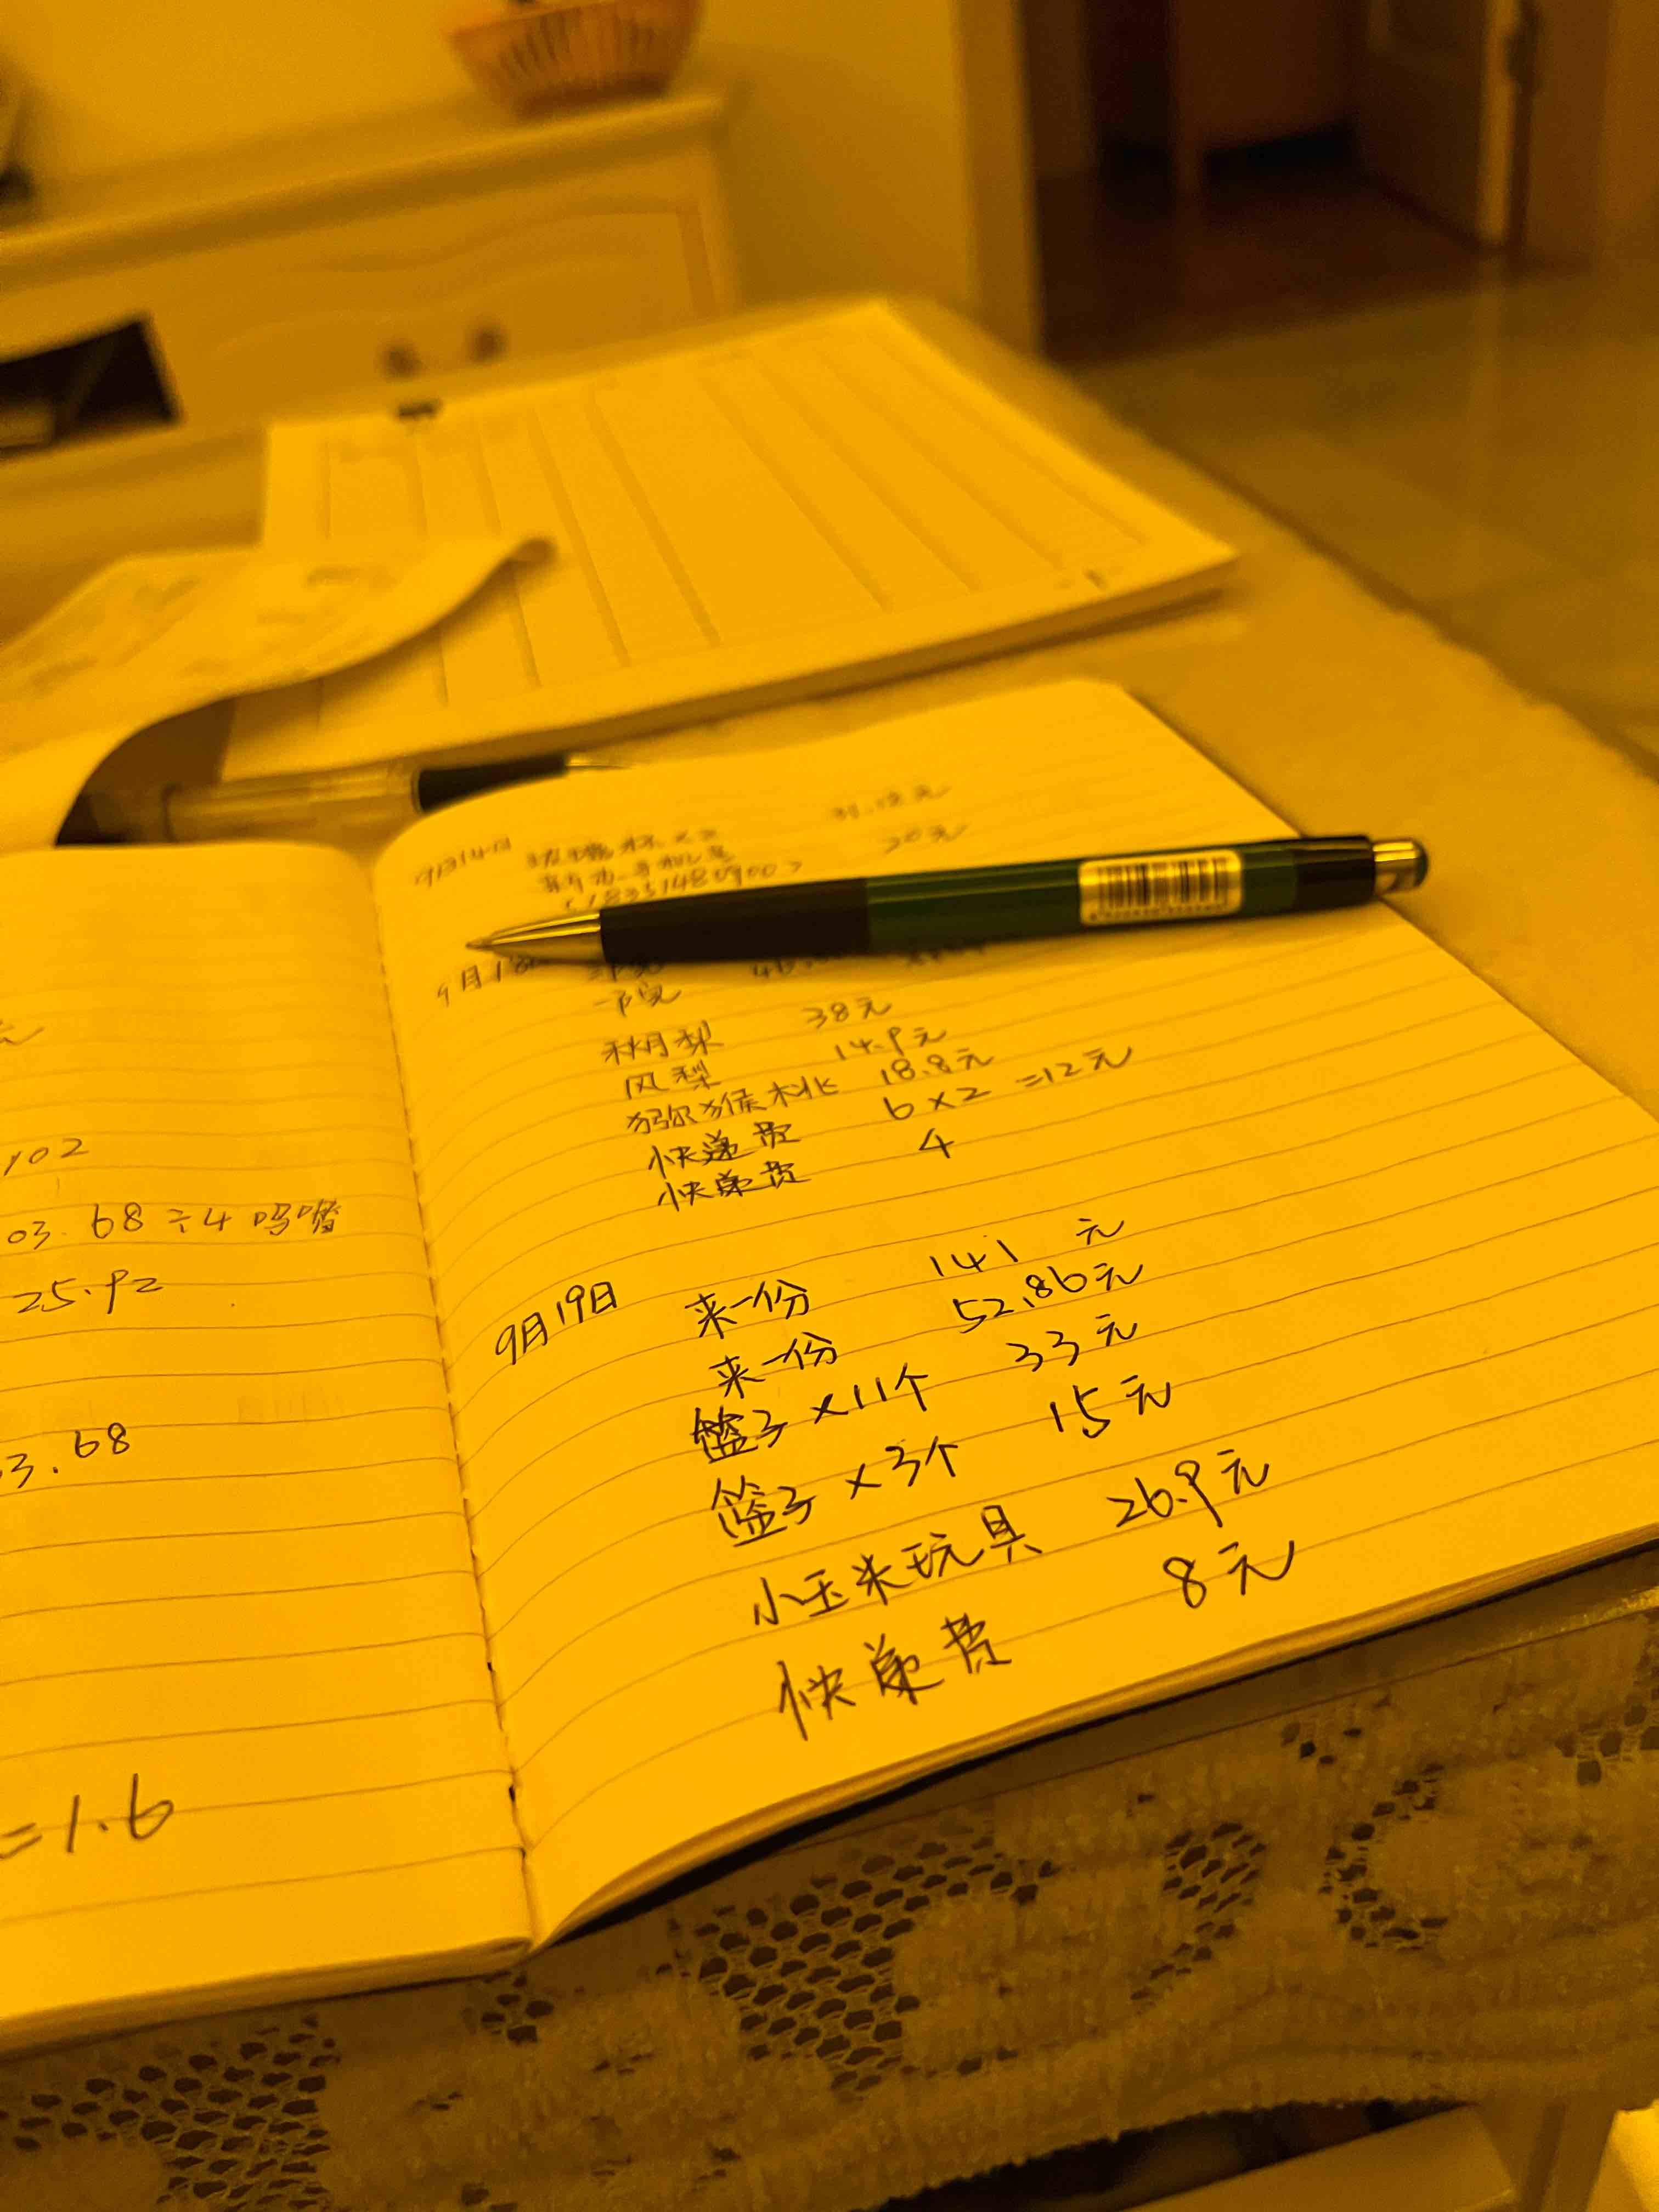 102
03.68÷4 吗啫
25.92
3.68
=1.6
玻璃杯×2 31.12元
20元
9月18
秋月梨 38元
凤梨 14.9元
猕猴桃 18.8元
快递费 6×2=12元
快递费 4
9月19日 来一份 141 元
来一份 52.86元
篮子×11个 33元
篮子×3个 15元
小玉米玩具 26.9元
快递费 8元